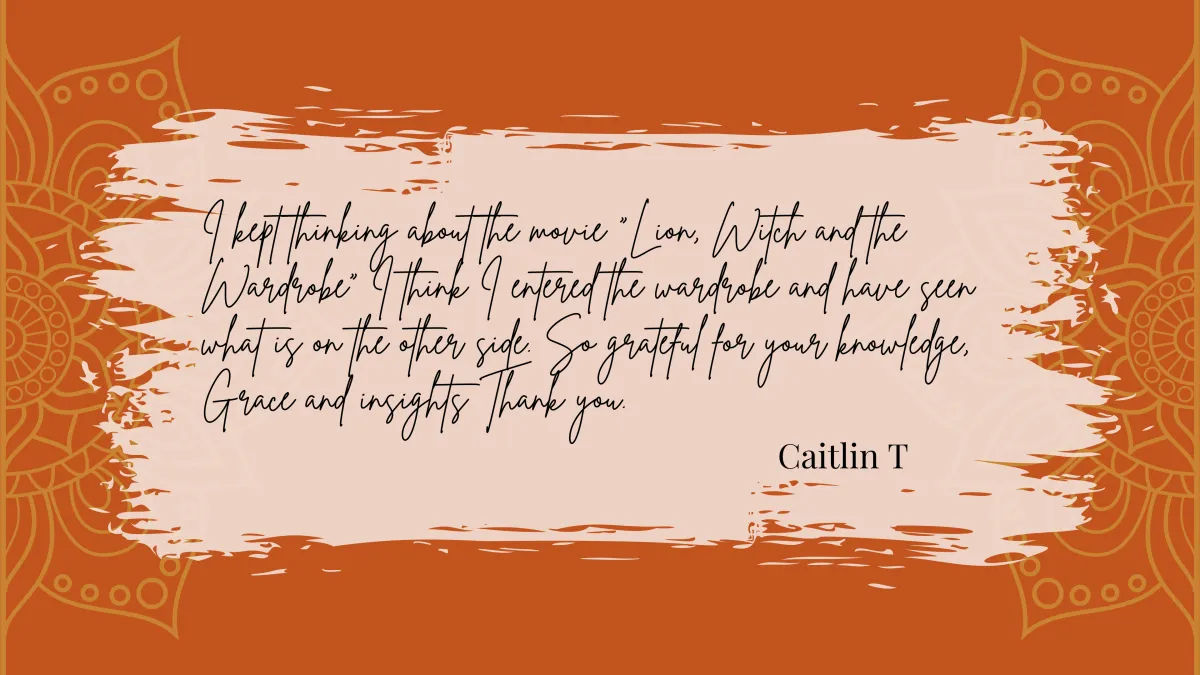 I kept thinking about the movie "Lion, Witch and the
Wardrobe" I think I entered the wardrobe and have seen
what is on the other side. So grateful for your knowledge,
Grace and insights Thank you.
Caitlin T